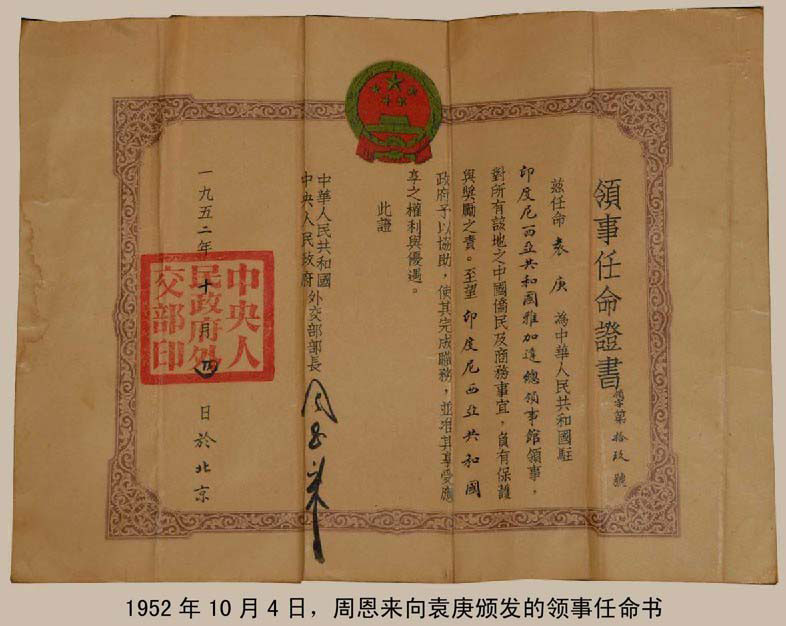 領事任命證書
領字第拾玖號
茲任命袁庚為中華人民共和國駐
印度尼西亞共和國雅加達總領事館領事，
對所有該地之中國僑民及商務事宜，負有保護
與獎勵之責。至望印度尼西亞共和國
政府予以協助，使其完成職務，並准其享受應
享之權利與優遇。
此證
中華人民共和國
中央人民政府
外交部部長
周恩来
一九五二年十月四日於北京
中央人
民政府外
交部印
1952年10月4日，周恩来向袁庚颁发的领事任命书